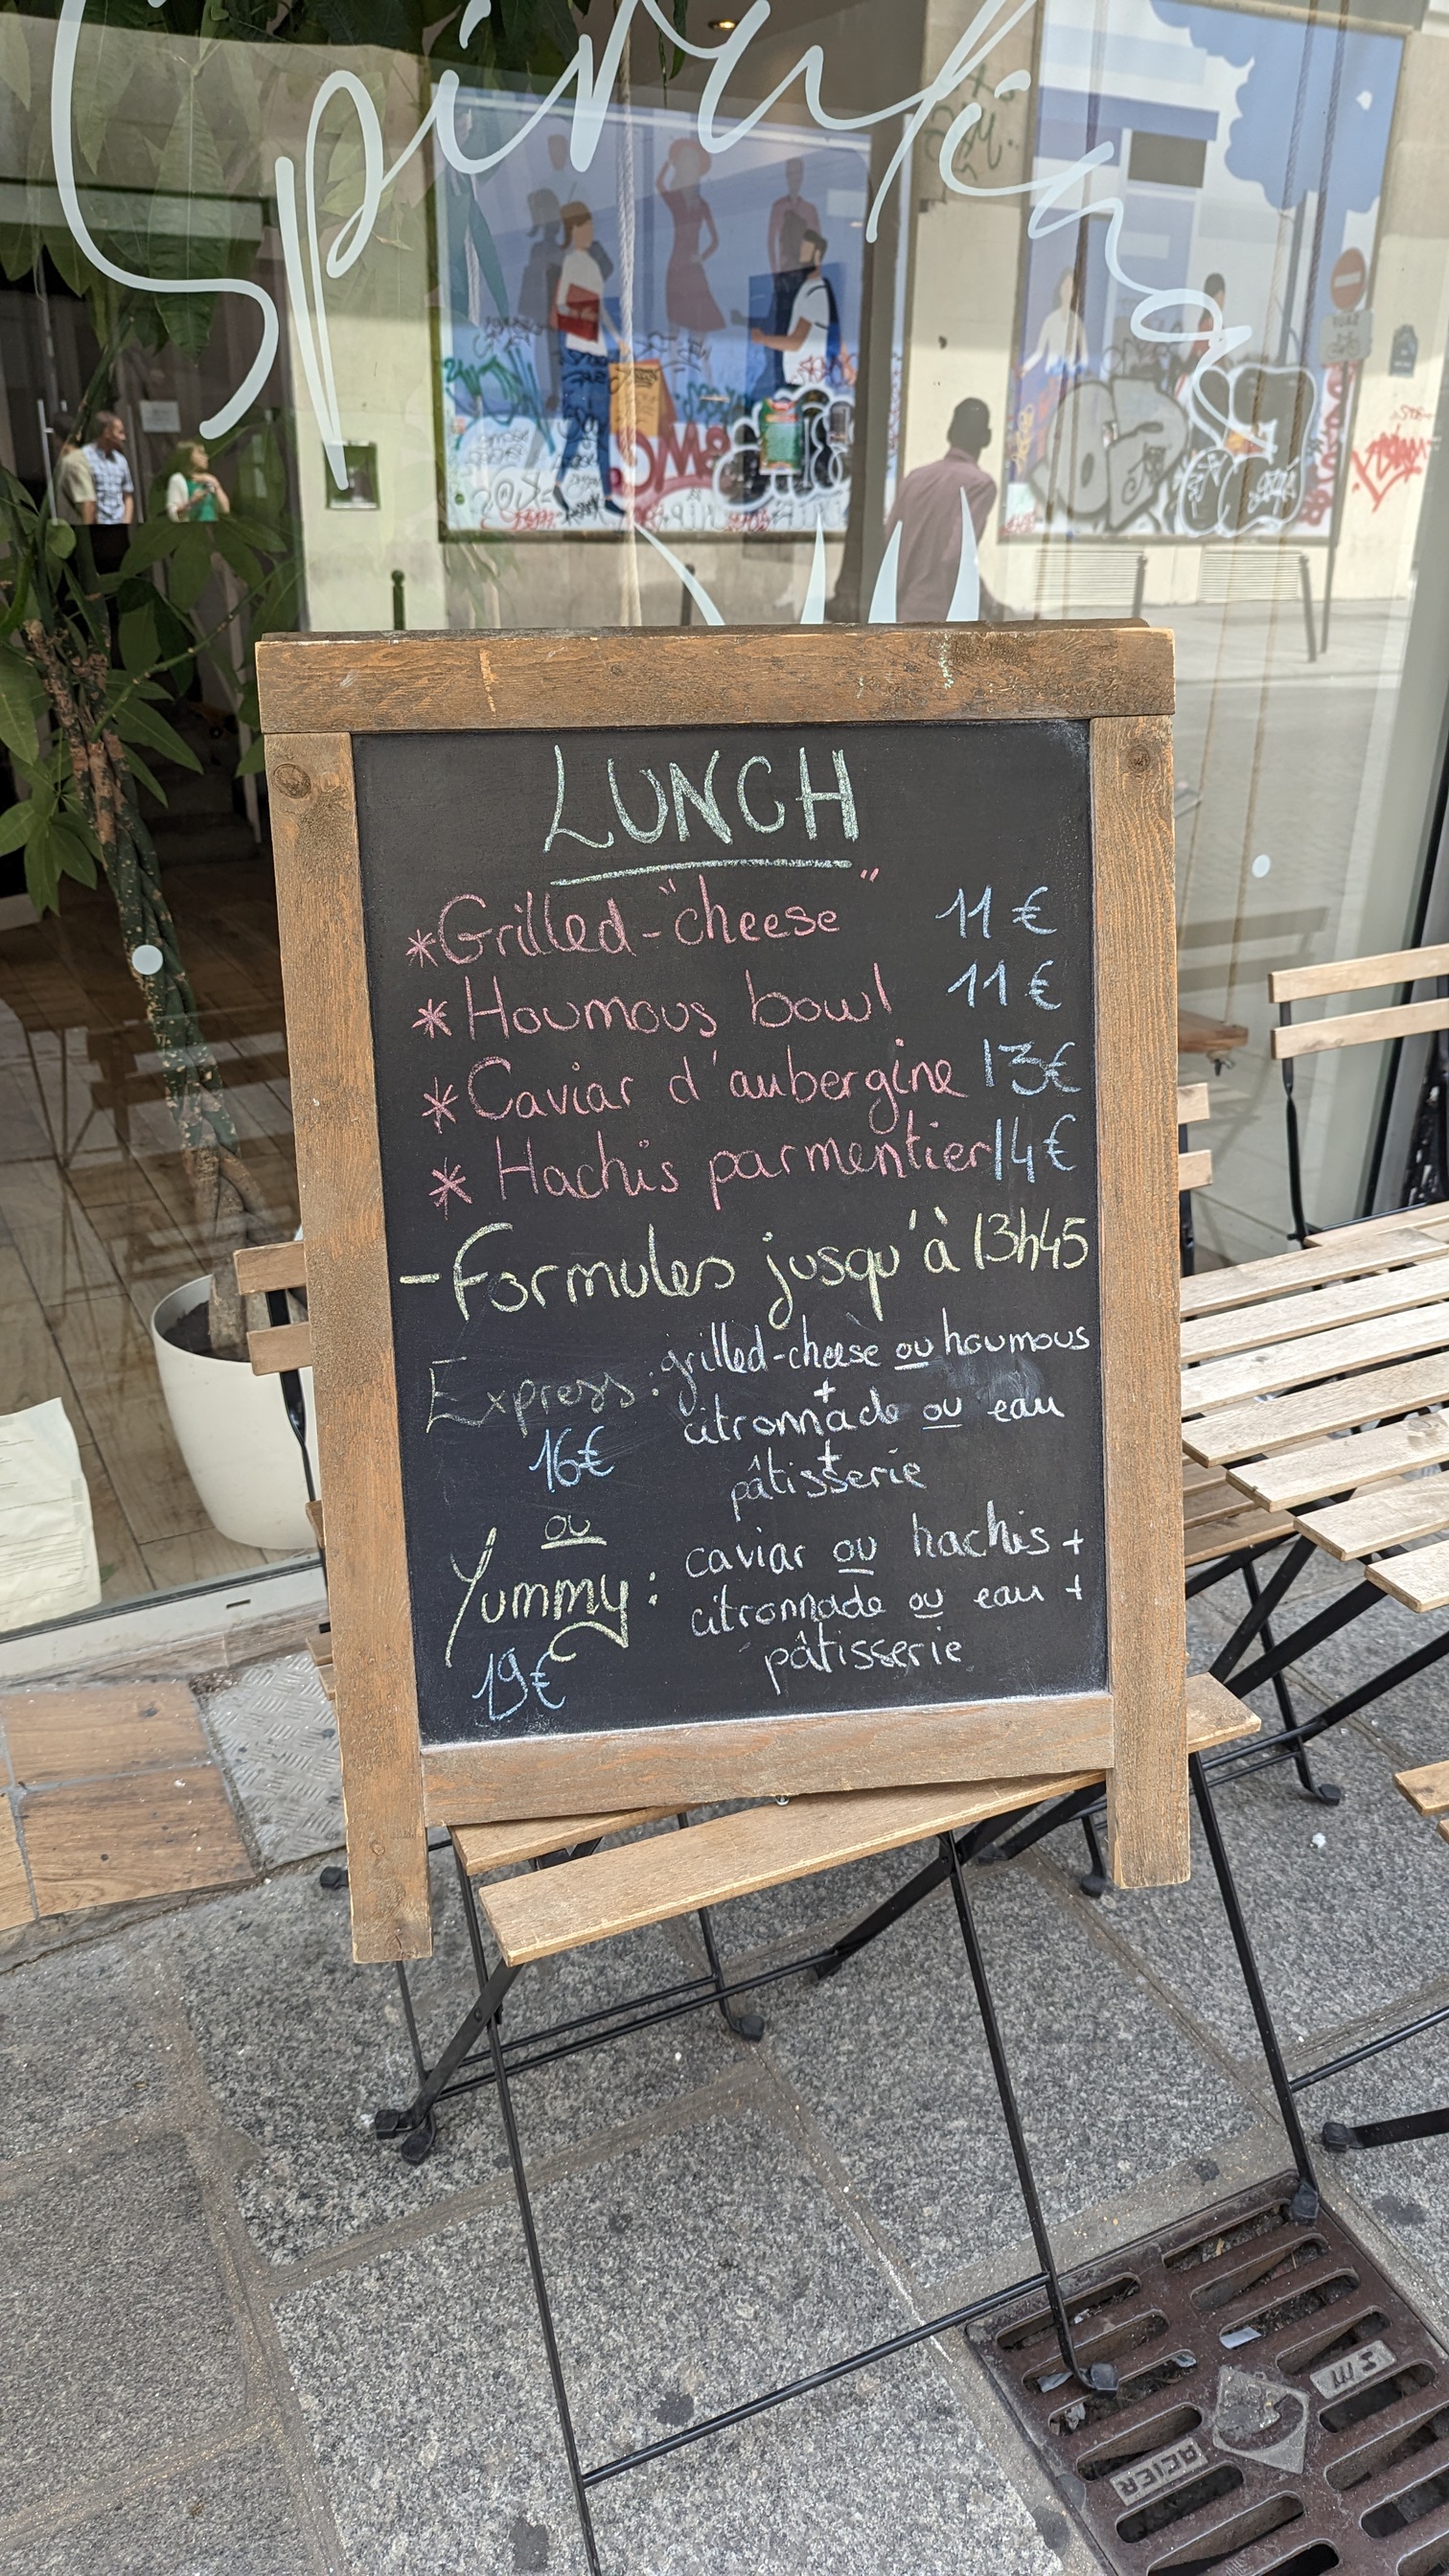 LUNCH
*Grilled-"cheese" 11€
*Houmous bowl 11€
*Caviar d'aubergine 13€
*Hachis parmentier 14€
-Formules jusqu'à 13h45
Express: grilled-cheese ou houmous
+
citronnade ou eau
16€
+
pâtisserie
ou
Yummy: caviar ou hachis +
citronnade ou eau +
pâtisserie
19€
SM
ACIER